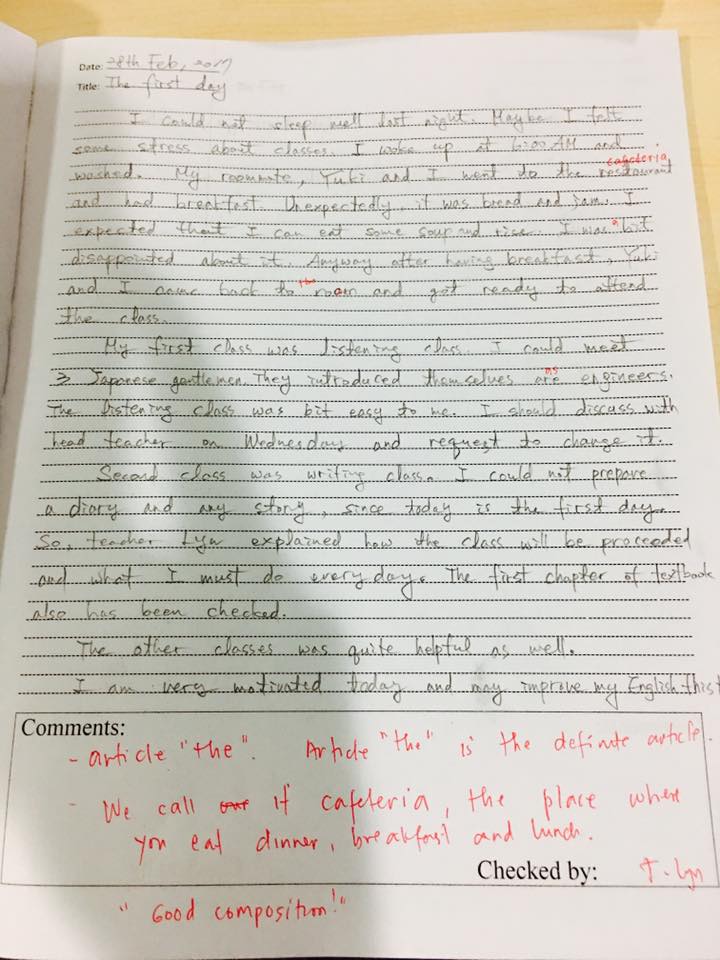 Date: 28th Feb, 2017
Title: The first day
I could not sleep well last night. Maybe I felt
some stress about classes. I woke up at 6:00 AM and
cafeteria
washed. My roommate, Yuki and I went to the restaurant
and had breakfast. Unexpectedly, it was bread and jam. I
expected that I can eat some soup and rice. I was a bit
disappointed about it. Anyway after having breakfast, Yuki
and I came back to the room and got ready to attend
the class.
My first class was listening class. I could meet
3 Japanese gentlemen. They introduced themselves are as engineers.
The listening class was bit easy to me. I should discuss with
head teacher on Wednesday and request to change it.
Second class was writing class. I could not prepare
a diary and any story, since today is the first day.
So, teacher Lyn explained how the class will be proceeded
and what I must do everyday. The first chapter of textbook
also has been checked.
The other classes was quite helpful as well.
I am very motivated today and may improve my English this
Comments:
- article "the". Article "the" is the definite article.
- We call our it cafeteria, the place where
you eat dinner, breakfast and lunch.
Checked by: T. Lyn
"Good composition!"